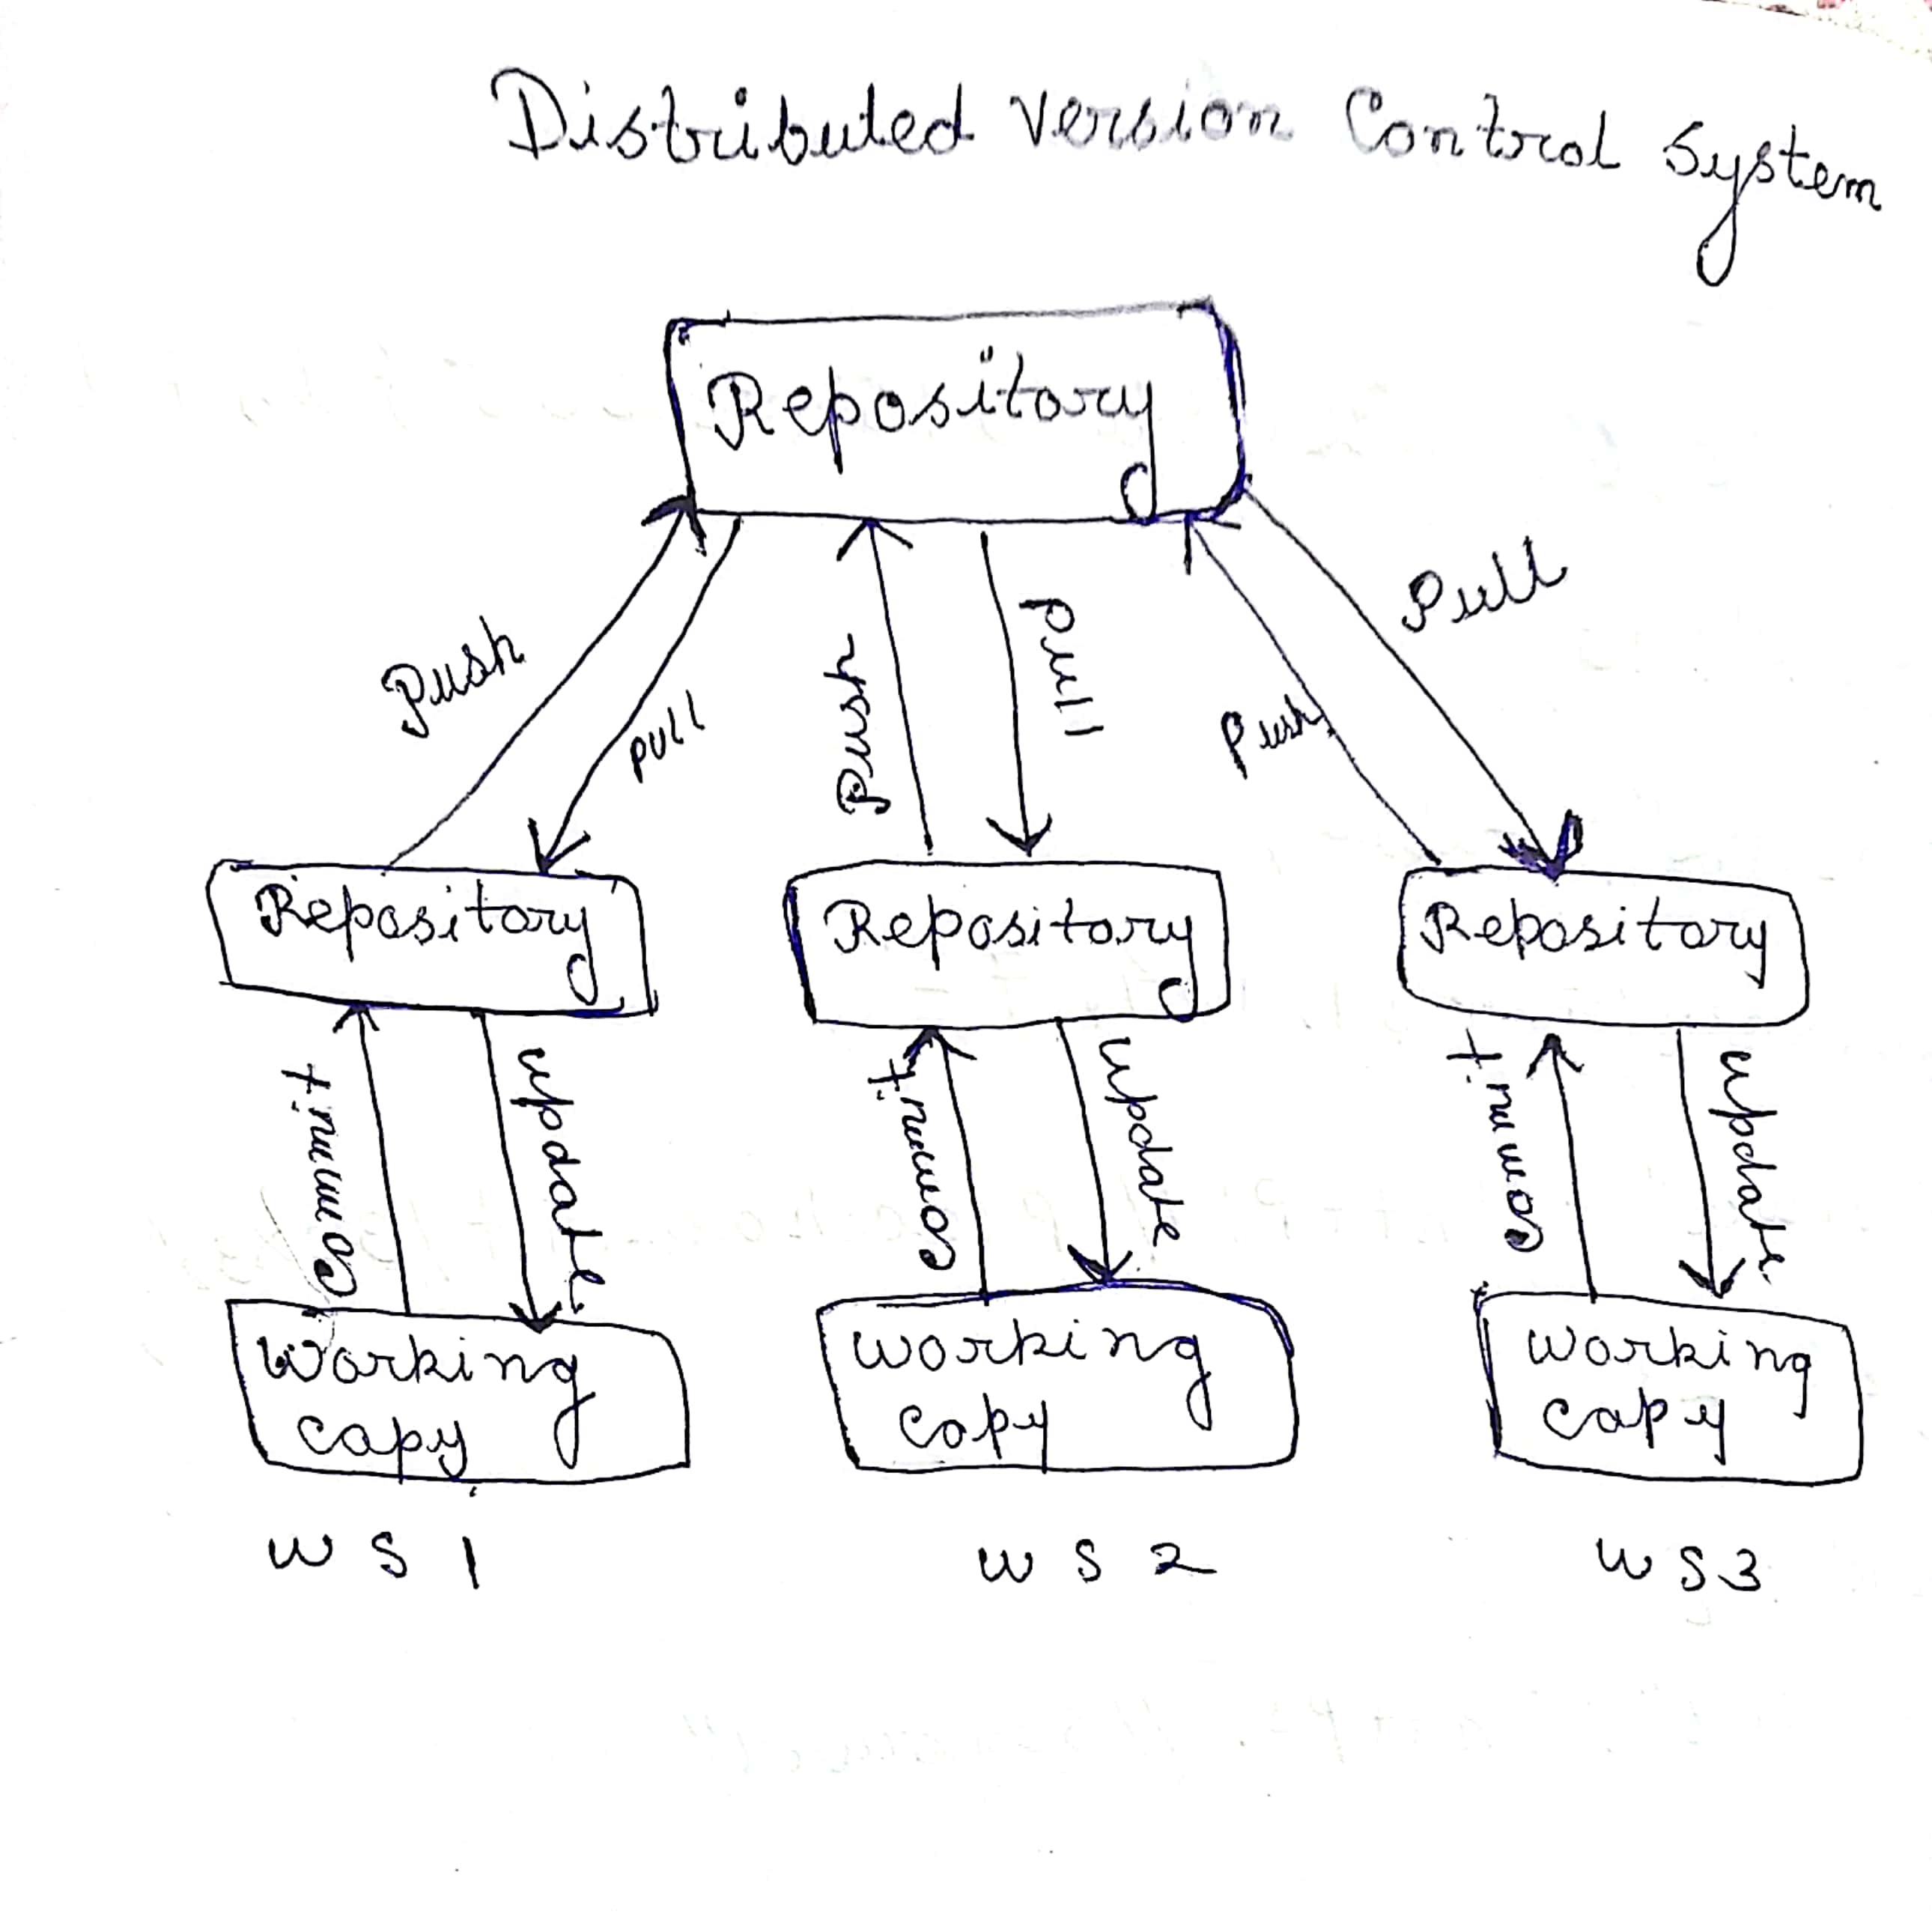 Distributed Version Control System
Repository
Push
Pull
Push
Pull
Push
Pull
Repository
Repository
Repository
Commit
Update
Commit
Update
Commit
Update
Working
Copy
Working
Copy
Working
Copy
WS 1
WS 2
WS3